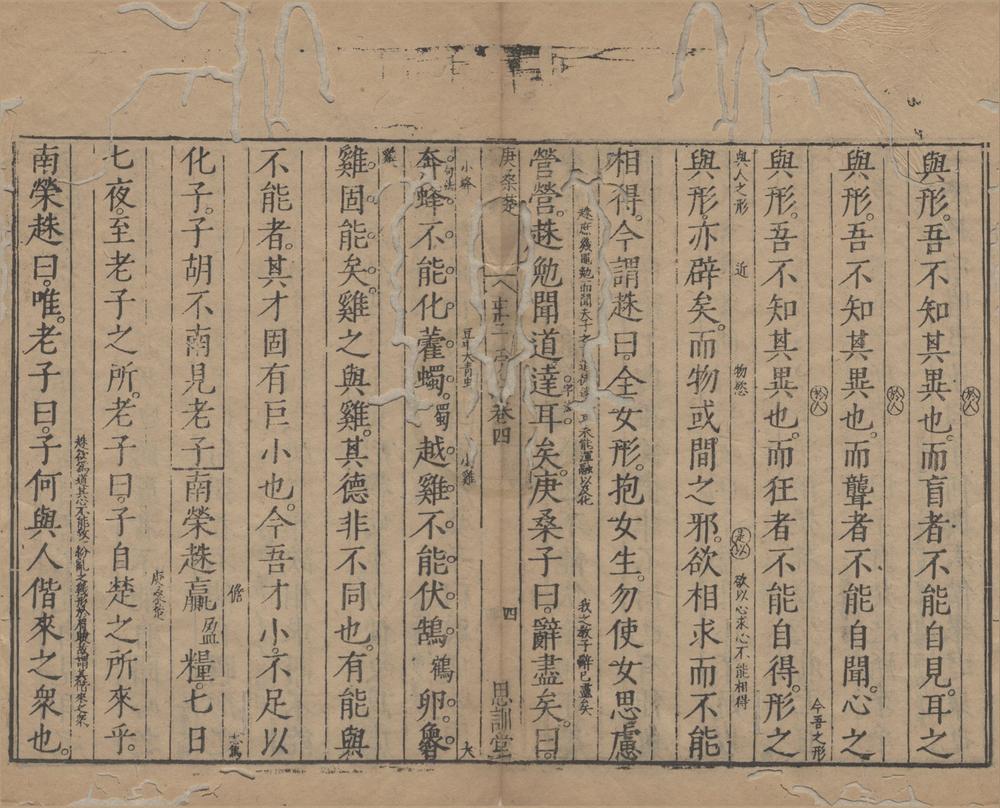 與形。吾不知其異也。而盲者不能自見。耳之
於人
與形。吾不知其異也。而聾者不能自聞。心之
於人
與形。吾不知其異也。而狂者不能自得。形之
於人
今吾之形
與形。亦辟矣。而物或間之邪。欲相求而不能
與人之形
近
物慾
是以
欲以心求心不能相得
相得。今謂趎曰。全女形。抱女生。勿使女思慮
營營。趎勉聞道達耳矣。庚桑子曰。辭盡矣。曰。
字法
我之教子辭已盡矣
庚桑楚
卷四
四
思訓堂
奔蜂不能化藿蠋。蠋越雞不能伏鵠鶴卵。魯
小蜂
句法
豆中大青虫
小雞
大
雞固能矣。雞之與雞。其德非不同也。有能與
雞
不能者。其才固有巨小也。今吾才小。不足以
化子。子胡不南見老子南榮趎贏盈糧。七日
擔
七夜。至老子之所。老子曰。子自楚之所來乎。
庚桑楚
南榮趎曰。唯。老子曰。子何與人偕來之衆也。